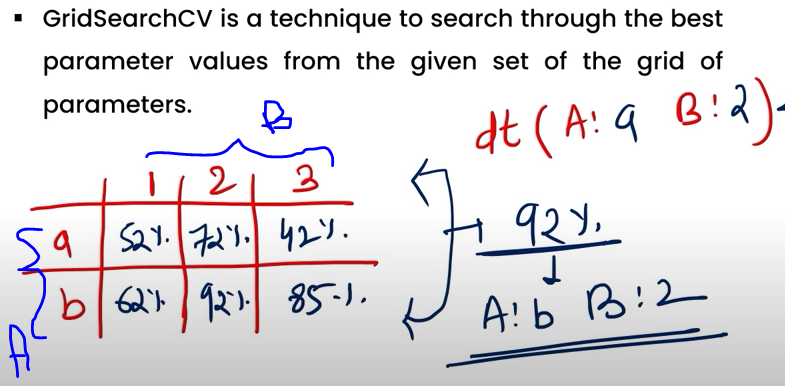 ▪ GridSearchCV is a technique to search through the best
parameter values from the given set of the grid of
parameters.
B
dt ( A: a B: 2 )
1 2 3
a 52%. 72%. 42%.
b 62%. 92%. 85%.
A
92%.
A: b B: 2